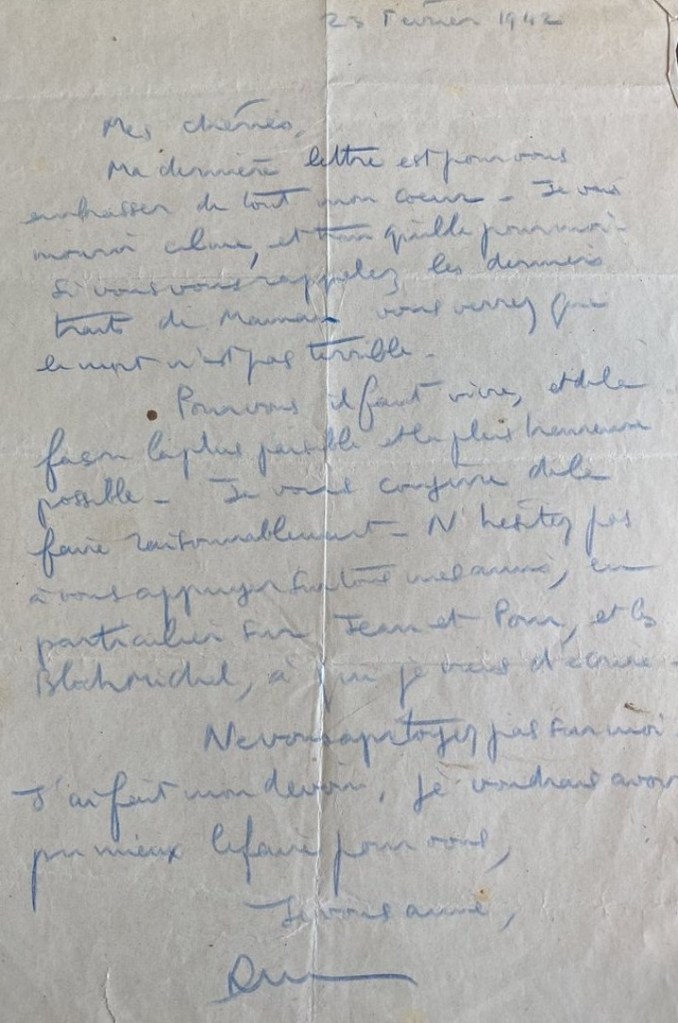 23 Février 1942
Mes chéries,
Ma dernière lettre est pour vous
embrasser de tout mon coeur - Je vais
mourir calme, et tranquille pour moi -
Si vous vous rappelez les derniers
traits de Maman vous verrez que
la mort n'est pas terrible -
Pour vous il faut vivre, et de la
façon la plus paisible et la plus heureuse
possible - Je vous conjure de le
faire raisonnablement - N'hésitez pas
à vous appuyer sur tous mes amis, en
particulier sur Jean et, et les
Bloch Michel, à qui je viens d'écrire -
Ne vous apitoyez pas sur moi
J'ai fait mon devoir, je voudrais avoir
pu mieux le faire pour vous,
Je vous aime,